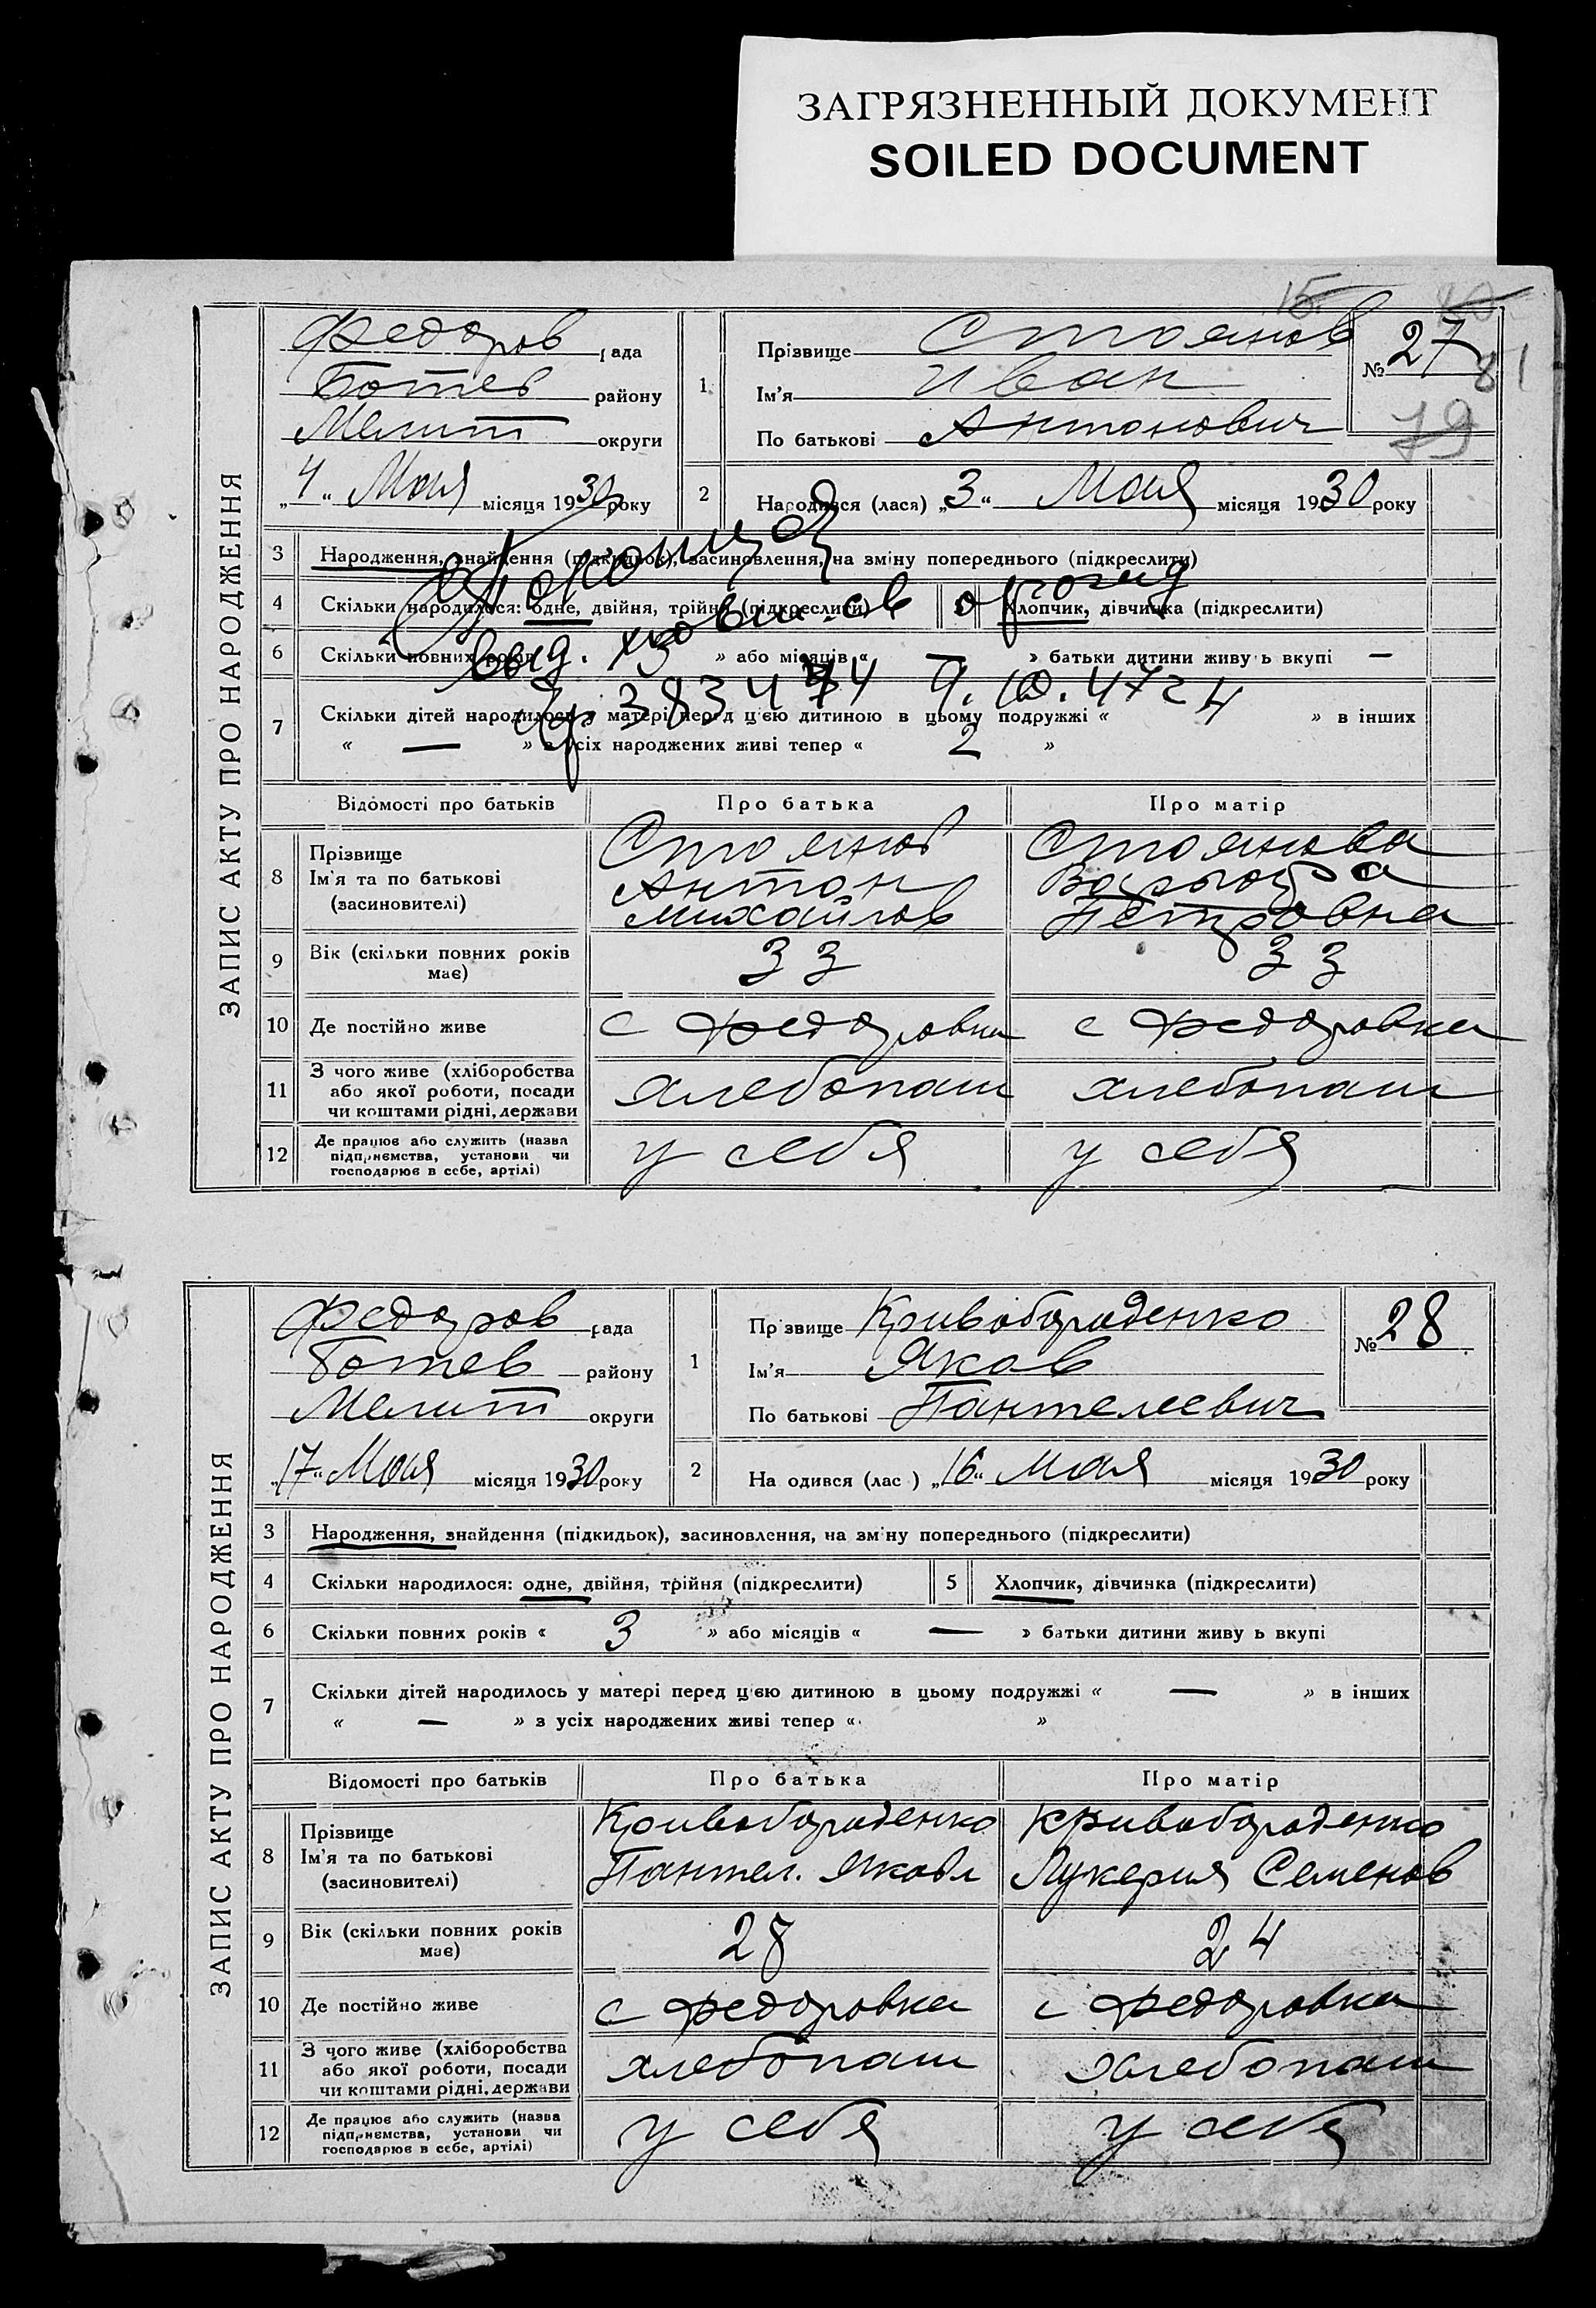 ЗАГРЯЗНЕННЫЙ ДОКУМЕНТ
SOILED DOCUMENT
ЗАПИС АКТУ ПРО НАРОДЖЕННЯ
Федоров рада
Ботев району
Мелит округи
„4“ Мая місяця 1930 року
15.
1 Прізвище Стоянов
Ім'я Иван
По батькові Антонович
№ 27
81
79
2 Народився (лася) „3“ Мая місяця 1930 року
3 Народження, знайдення (підкидьок), засиновлення, на зміну попереднього (підкреслити)
4 Скільки народилося: одне, двійня, трійня (підкреслити)
Хлопчик, дівчинка (підкреслити)
6 Скільки повних років « 3 » або місяців « — » батьки дитини живуть вкупі —
7 Скільки дітей народилось у матері перед цією дитиною в цьому подружжі « 4 » в інших
« — » з усіх народжених живі тепер « 2 »
выд.
383474 9.10.47г
Відомості про батьків Про батька Про матір
8 Прізвище
Ім'я та по батькові
(засиновителі)
Стоянов
Антон
Михайлов
Стоянова
Варвара
Петровна
9 Вік (скільки повних років
має)
33 33
10 Де постійно живе с Федоровка с Федоровка
11 З чого живе (хліборобства
або якої роботи, посади
чи коштами рідні, держави
хлебопаш хлебопаш
12 Де працює або служить (назва
підприємства, установи чи
господарює в себе, артілі)
у себя у себя
ЗАПИС АКТУ ПРО НАРОДЖЕННЯ
Федоров рада
Ботев району
Мелит округи
„17“ Мая місяця 1930 року
1 Прзвище Кривобороденко
Ім'я Яков
По батькові Пантелеевич
№ 28
2 На одився (лас ) „16“ Мая місяця 1930 року
3 Народження, знайдення (підкидьок), засиновлення, на зміну попереднього (підкреслити)
4 Скільки народилося: одне, двійня, трійня (підкреслити) 5 Хлопчик, дівчинка (підкреслити)
6 Скільки повних років « 3 » або місяців « — » батьки дитини живу ь вкупі
7 Скільки дітей народилось у матері перед цією дитиною в цьому подружжі « — » в інших
« — » з усіх народжених живі тепер « »
Відомості про батьків Про батька Про матір
8 Прізвище
Ім'я та по батькові
(засиновителі)
Кривобороденко
Пантел. Яковл
Кривобороденко
Лукерия Семенов
9 Вік (скільки повних років
має)
28 24
10 Де постійно живе с Федоровка с Федоровка
11 З чого живе (хліборобства
або якої роботи, посади
чи коштами рідні, держави
хлебопаш хлебопаш
12 Де працює або служить (назва
підприємства, установи чи
господарює в себе, артілі)
у себя у себя